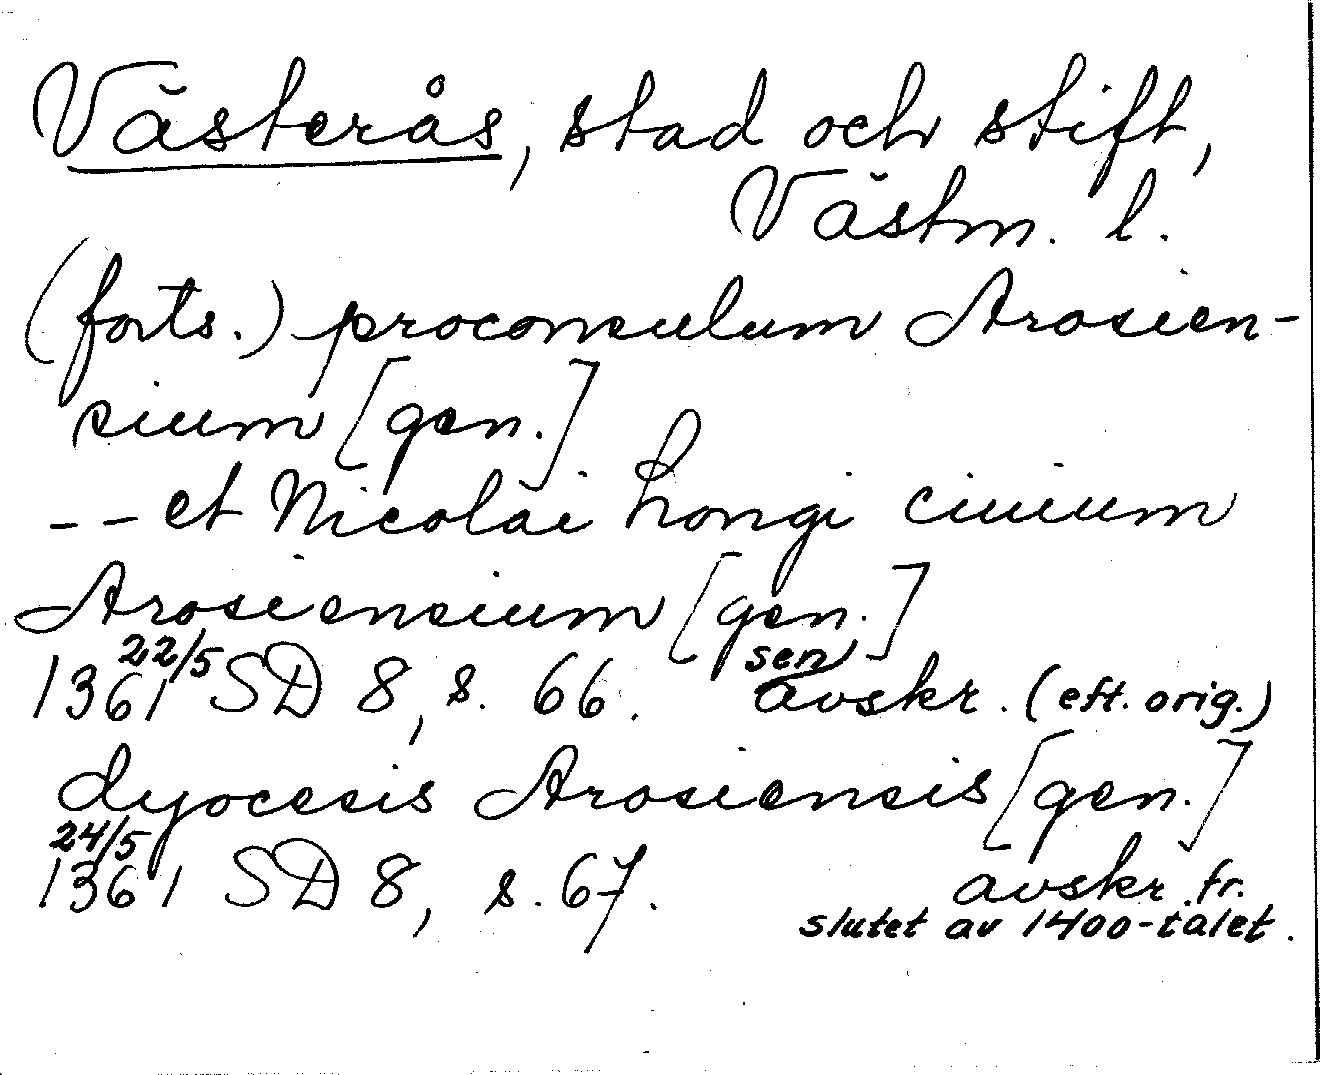 Västerås, stad och stift,
Västm. l.
(forts.) proconsulum Arosien-
sium [gen.]
-- et Nicolai hongi ciuium
Arosiensium [gen.]
1361 22/5 SD 8, s. 66. sen avskr. (eft. orig.)
dyocesis Arosiensis [gen.]
1361 24/5 SD 8, s. 67. avskr. fr.
slutet av 1400-talet.